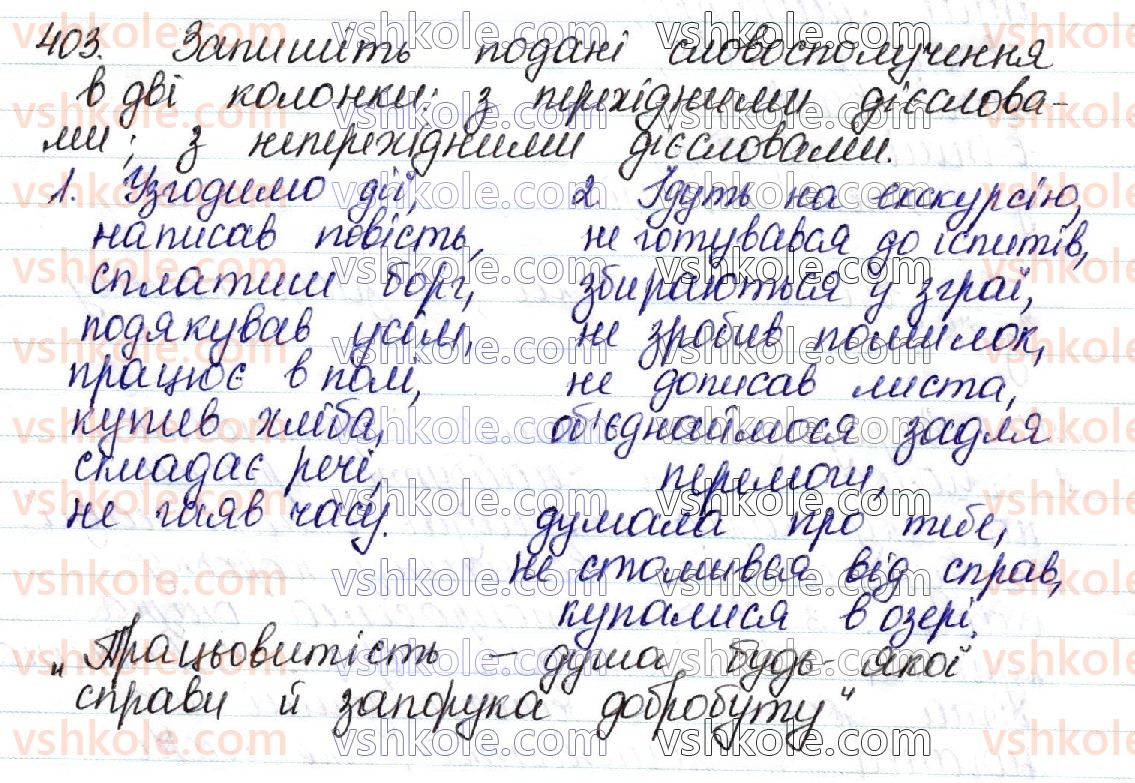 403. Запишіть подані словосполучення
в дві колонки: з перехідними дієслова-
ми; з неперехідними дієсловами.
1. Узгодимо дії, 2. Ідуть на екскурсію,
написав повість, не готувався до іспитів,
сплатиш борг, збираються у зграї,
подякував усім, не зробив помилок,
працює в полі, не дописав листа,
купив хліба, об'єднаймося задля
складає речі, перемоги,
не гаяв часу. думала про тебе,
не стомився від справ,
купалися в озері.
„Працьовитість – душа будь-якої
справи й запорука добробуту"